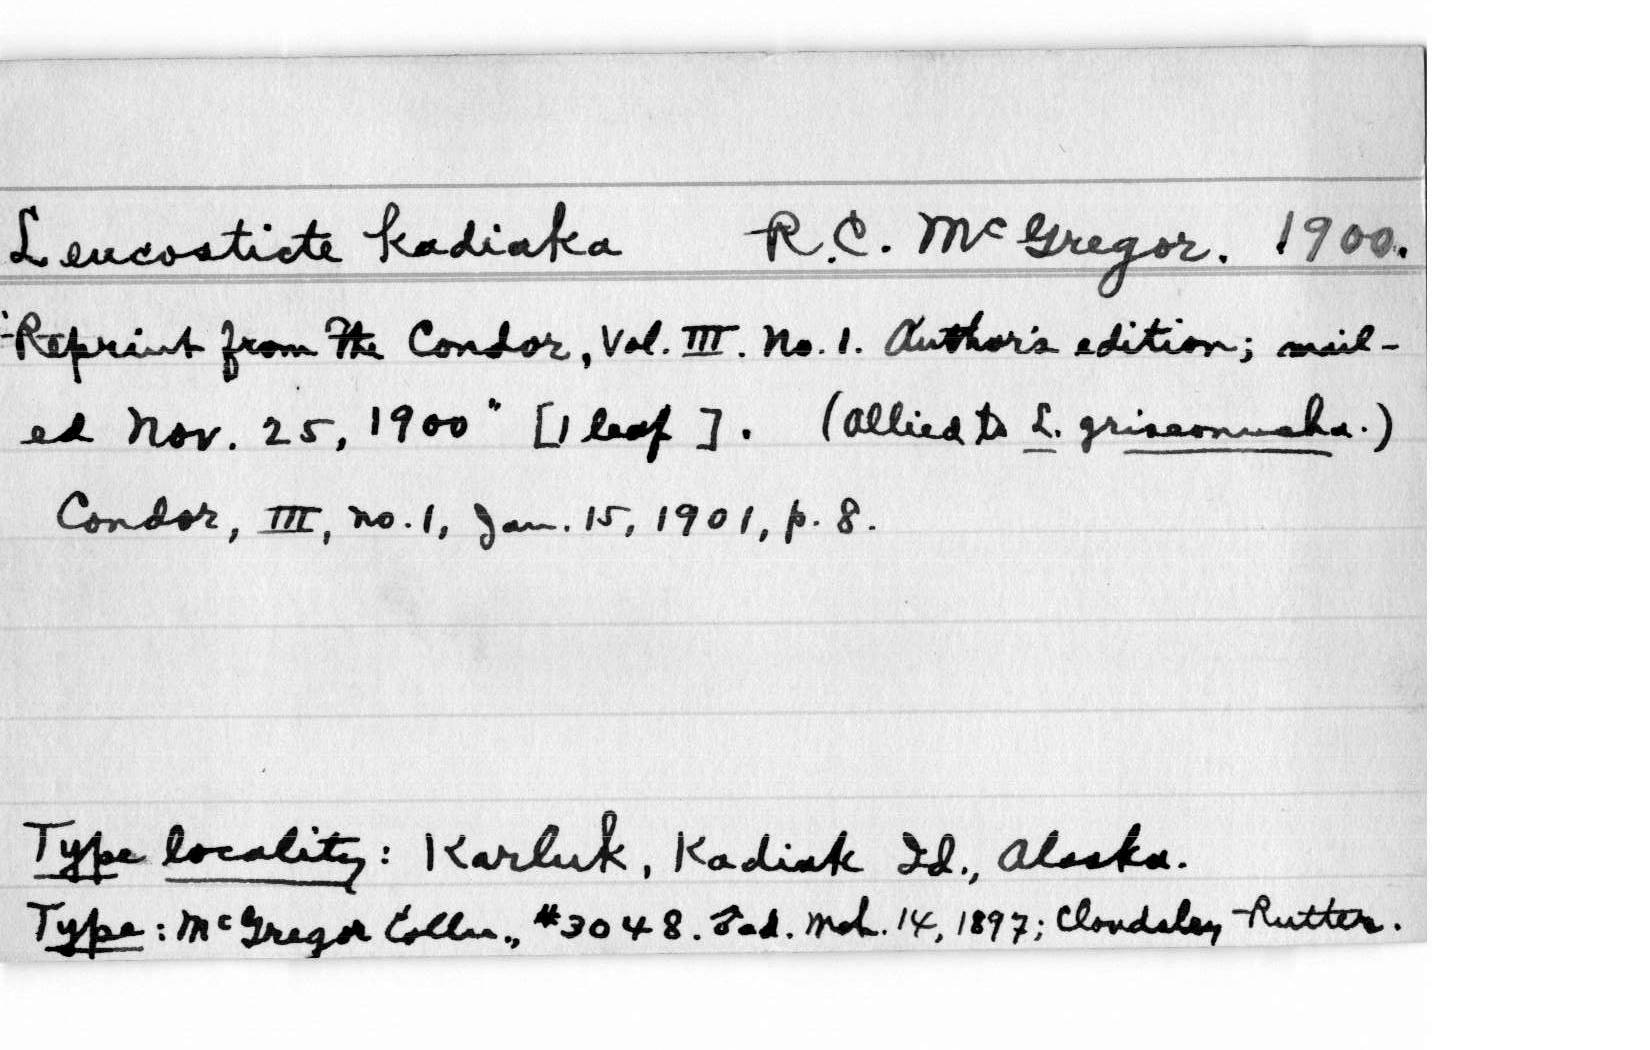 Leucosticte kadiaka R.C. McGregor. 1900.
"Reprint from The Condor, Vol. III. No. 1. Author's edition; mail-
ed Nov. 25, 1900" [1 leaf]. (Allied to L. griseonucha.)
Condor, III, no. 1, Jan. 15, 1901, p. 8.
Type locality: Karluk, Kadiak Id., Alaska.
Type: McGregor Colln., #3048. ♂ad. Mch. 14, 1897; Cloudsley Rutter.